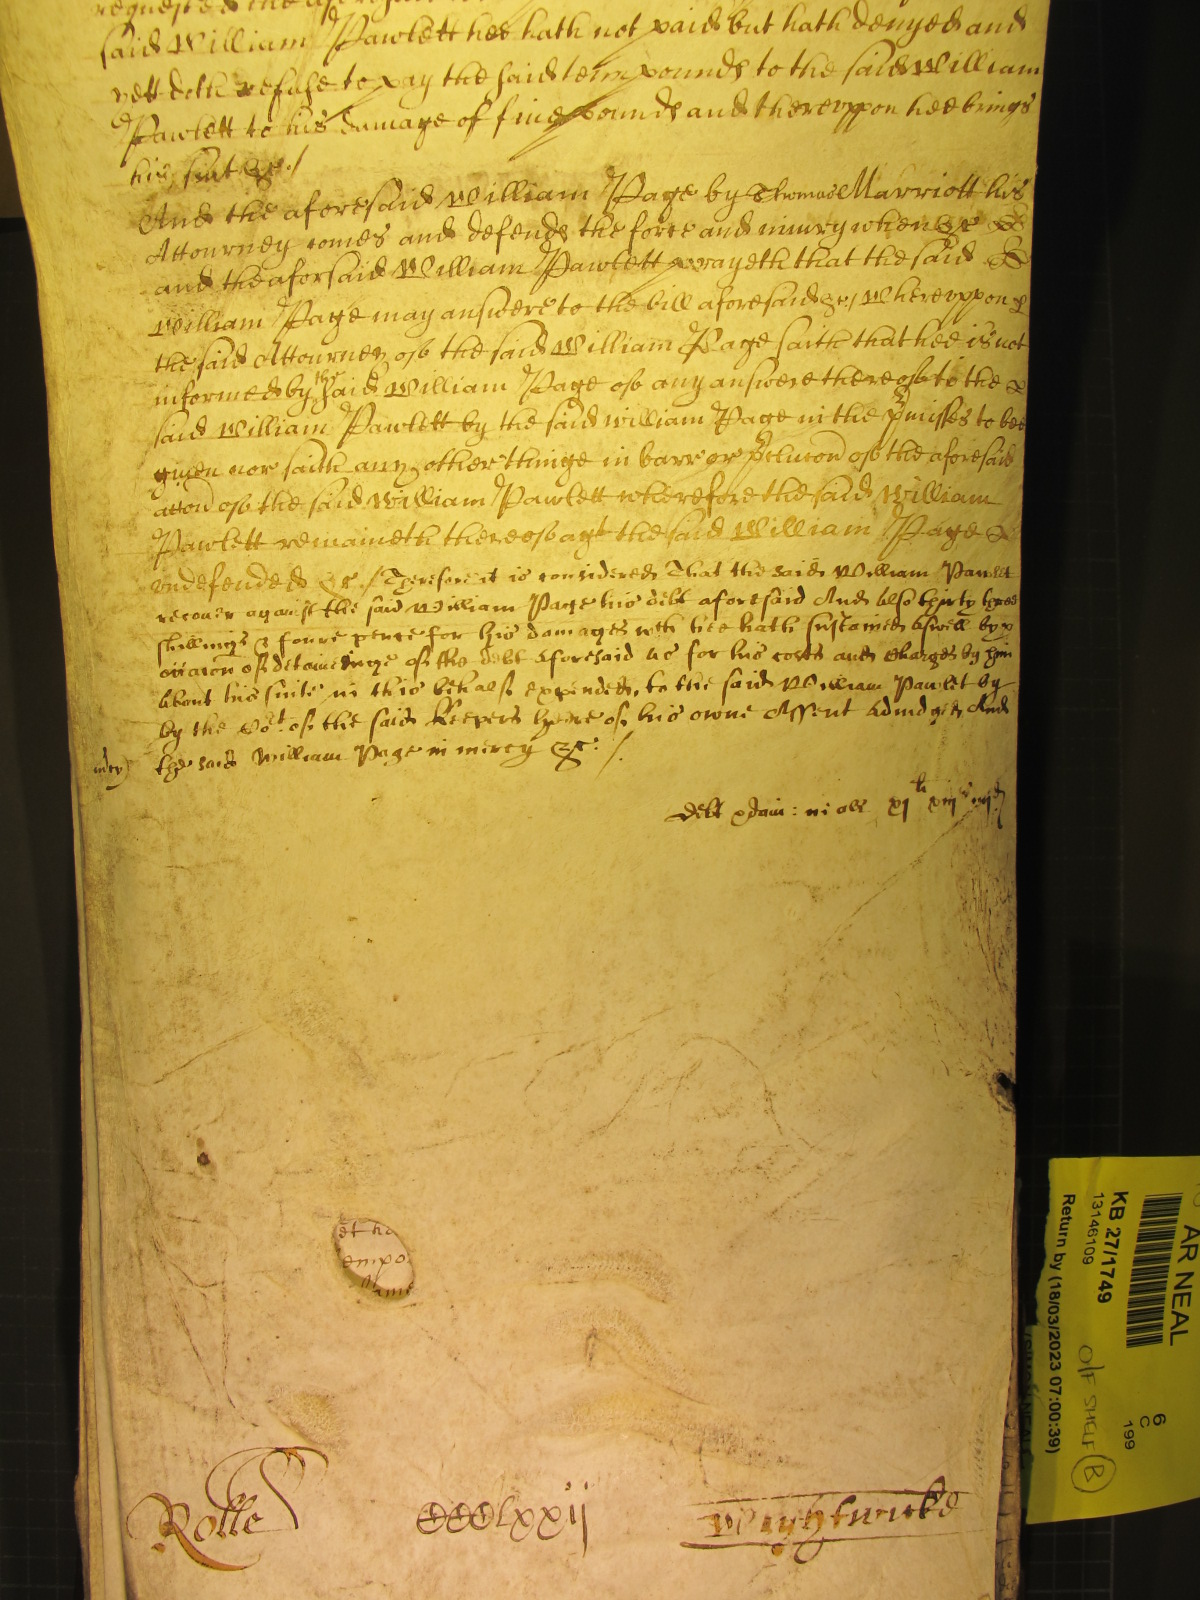 requested the aforesaid
said William Pawlett hee hath not paid but hath denyed and
yett doth refuse to pay the said tenn pounds to the said William
Pawlett to his damage of five pounds and therevppon hee brings
his suit &c /
And the aforesaid William Page by Thomas Marriott his
Attourney comes and defends the force and iniury when &c &
and the aforsaid William Pawlett prayeth that the said &
William Page may answere to the bill aforesaid &c / Wherevppon
the said Attourney of the said William Page saith that hee is not
informed by the said William Page of any answere thereof to the
said William Pawlett by the said William Page in the pmisses to bee
giuen nor saith any other thinge in barr or pclucon of the aforesaid
accon of the said William Pawlett wherefore the said William
Pawlett remaineth thereof agt the said William Page
vndefended &c / Therefore it is considered That the said William Pawlet
recouer against the said William Page his debt aforesaid And also thirty three
shillings & foure pence for his damages wch hee hath sustained aswell by
occacon of deteininge of the debt aforesaid as for his costs and charges by him
about his suite in this behalfe expended, to the said William Pawlet by
by the Cort of the said Keepers here of his owne Assent Adiudged And
mcy) the said William Page in mercy &c: /.
Debt & dam: in all xjli xiijs iiijd
et ha
empo
Rolle CCClxxij Wightwicke
AR NEAL
KB 27/1749
13146109
Return by (18/03/2023 07:00:39)
6
C
199
O/F SHELF B